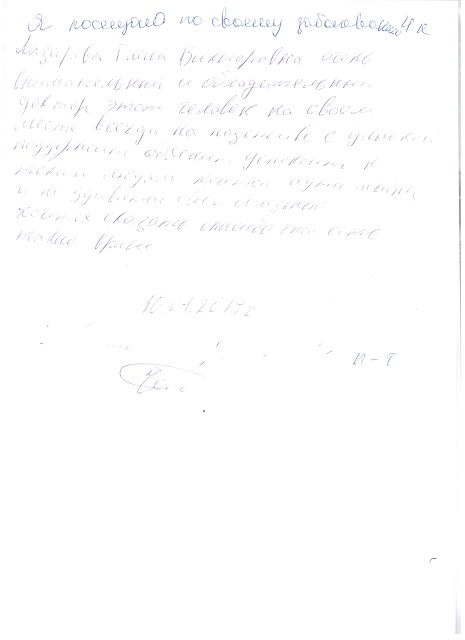 Я посещаю по своему заболеванию 4 к
Лазарева Елена Викторовна очень
внимательный и обходительный
доктор этот человек на своем
месте всегда на позитиве с улыбкой
поддержит объяснит успокоит к
таким людям хочется идти
и не
хочется сказать спасибо что есть
такие врачи
16.01.2019г